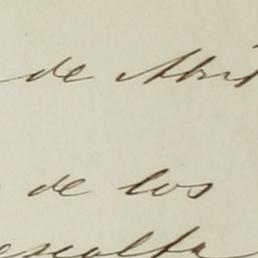 de Abril
de los
escolta